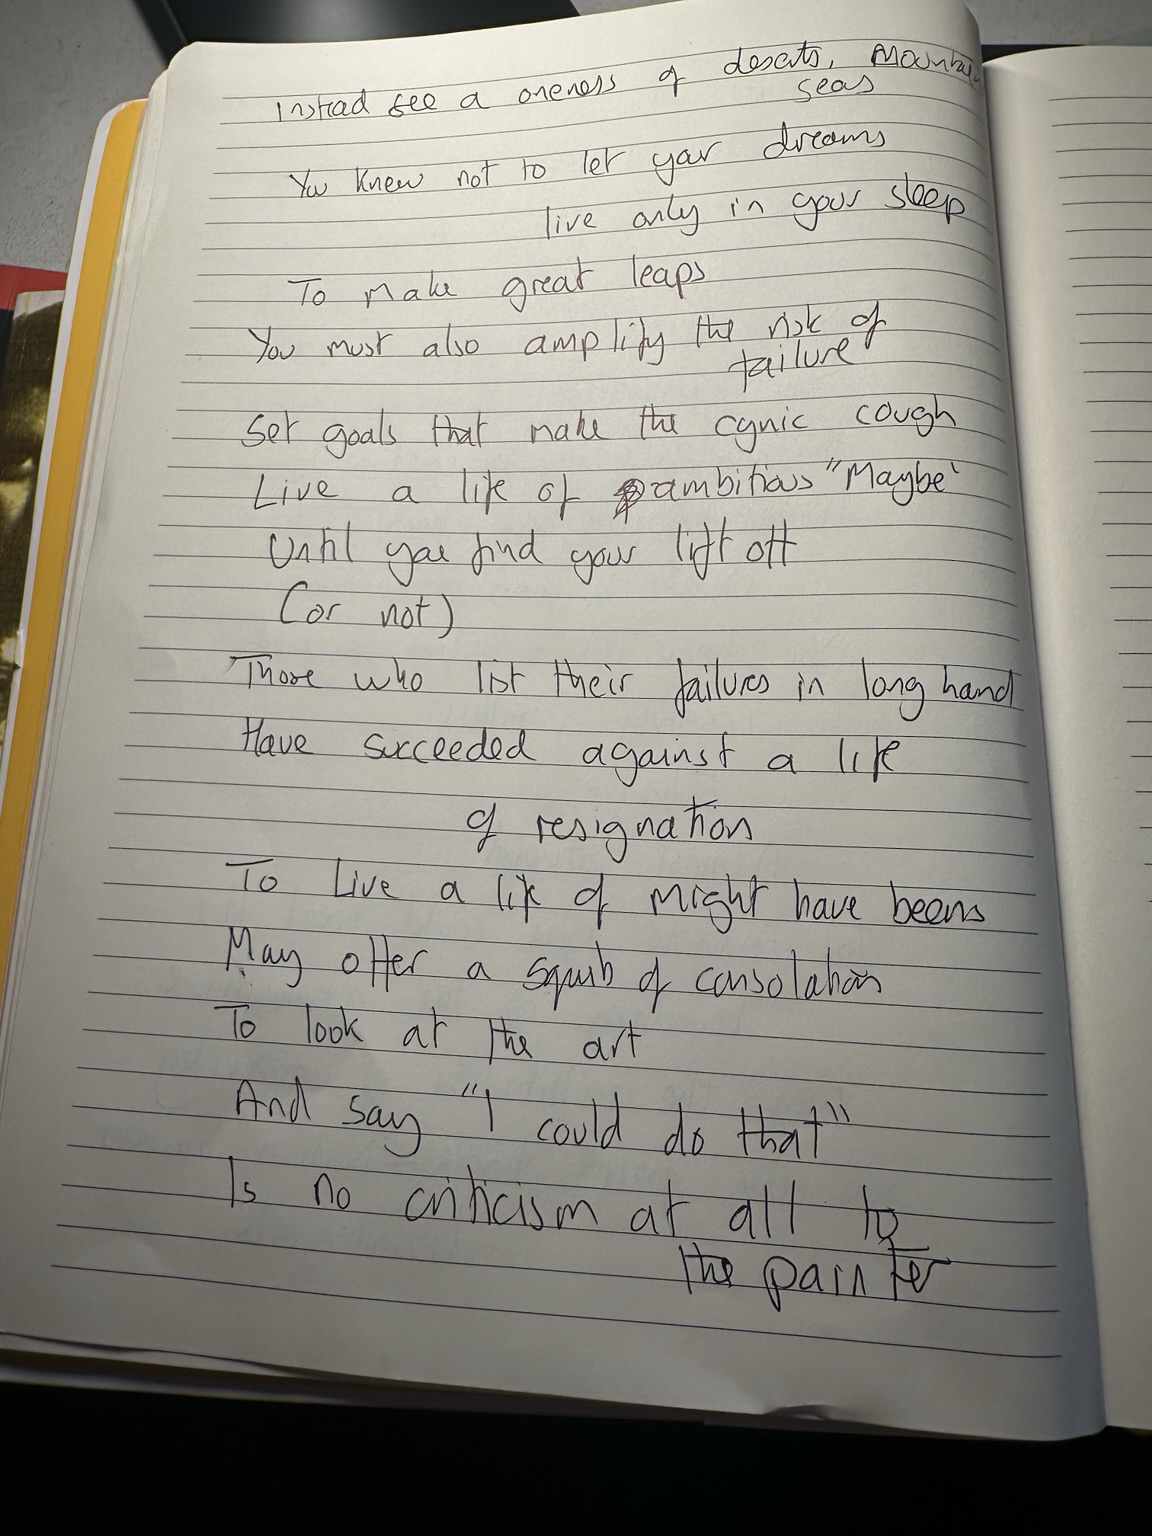 Instead see a oneness of deserts, Mountains
seas
You knew not to let your dreams
live only in your sleep
To make great leaps
You must also amplify the risk of
failure
Set goals that make the cynic cough
Live a life of ambitious "Maybe"
Until you find your lift off
(or not)
Those who list their failures in long hand
Have succeeded against a life
of resignation
To Live a life of might have beens
May offer a squib of consolation
To look at the art
And say "I could do that"
Is no criticism at all to
the painter